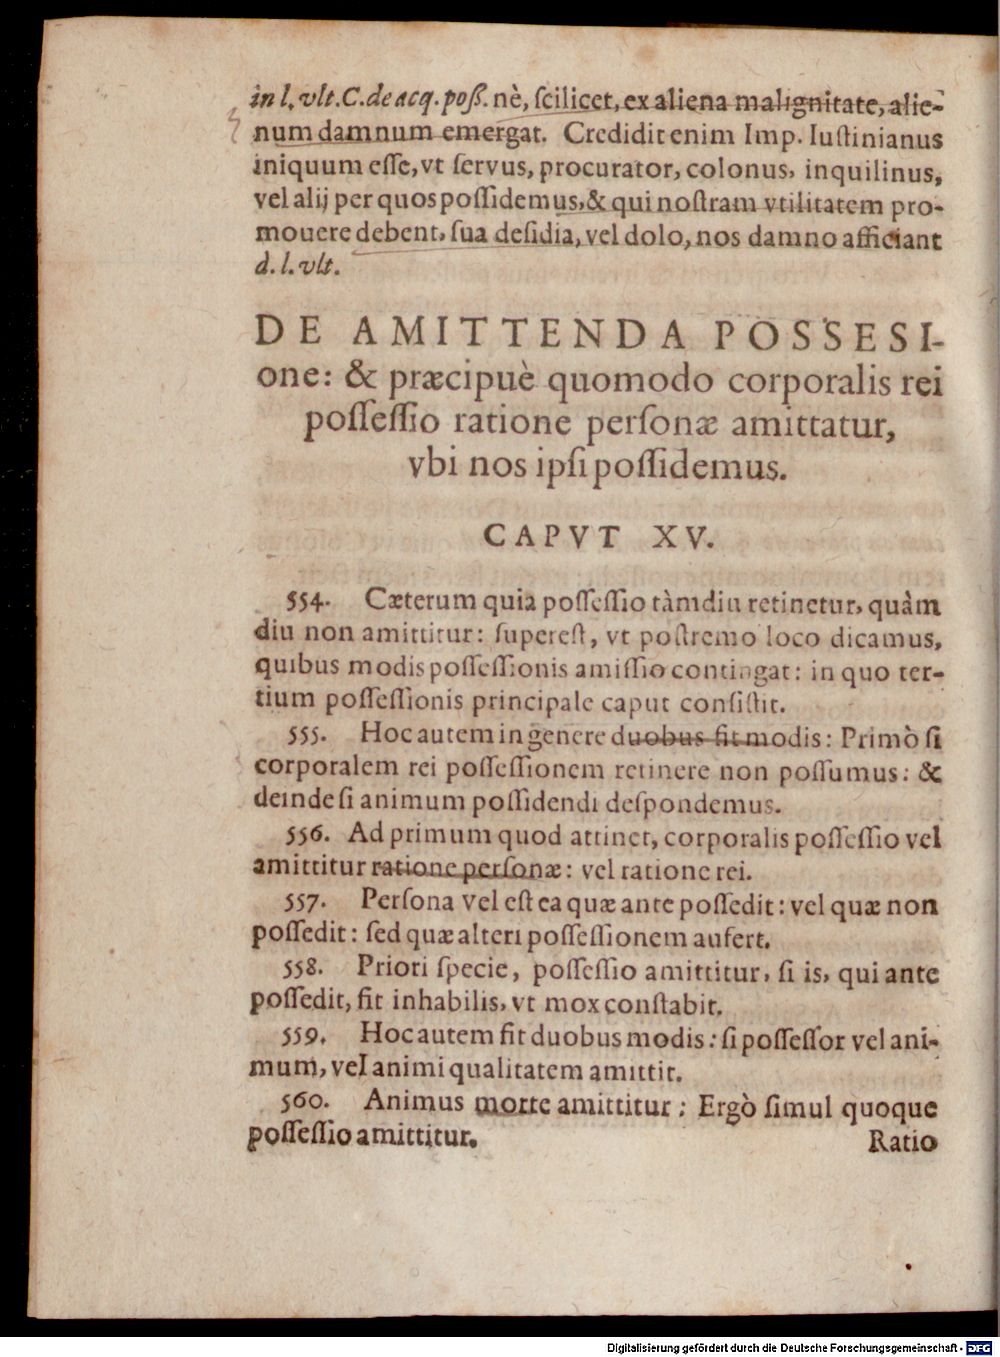 in l. vlt. C. de acq. poß. nè, ſcilicet, ex aliena malignitate, alie-
num damnum emergat. Credidit enim Imp. Iuſtinianus
iniquum eſſe, vt ſervus, procurator, colonus, inquilinus,
vel alij per quos poſſidemus, & qui noſtram vtilitatem pro-
mouere debent, ſua deſidia, vel dolo, nos damno afficiant
d. l. vlt.
DE AMITTENDA POSSESI-
one: & præcipuè quomodo corporalis rei
poſſeſſio ratione perſonæ amittatur,
vbi nos ipſi poſſidemus.
CAPVT XV.
554. Cæterum quia poſſeſſio tàmdiu retinetur, quàm
diu non amittitur: ſupereſt, vt poſtremo loco dicamus,
quibus modis poſſeſſionis amiſſio contingat: in quo ter-
tium poſſeſſionis principale caput conſiſtit.
555. Hoc autem in genere duobus fit modis: Primò ſi
corporalem rei poſſeſſionem retinere non poſſumus: &
deinde ſi animum poſſidendi deſpondemus.
556. Ad primum quod attinet, corporalis poſſeſſio vel
amittitur ratione perſonæ: vel ratione rei.
557. Perſona vel eſt ea quæ ante poſſedit: vel quæ non
poſſedit: ſed quæ alteri poſſeſſionem aufert.
558. Priori ſpecie, poſſeſſio amittitur, ſi is, qui ante
poſſedit, fit inhabilis, vt mox conſtabit.
559. Hoc autem fit duobus modis: ſi poſſeſſor vel ani-
mum, vel animi qualitatem amittit.
560. Animus morte amittitur: Ergò ſimul quoque
poſſeſſio amittitur.
Ratio
Digitalisierung gefördert durch die Deutsche Forschungsgemeinschaft - DFG